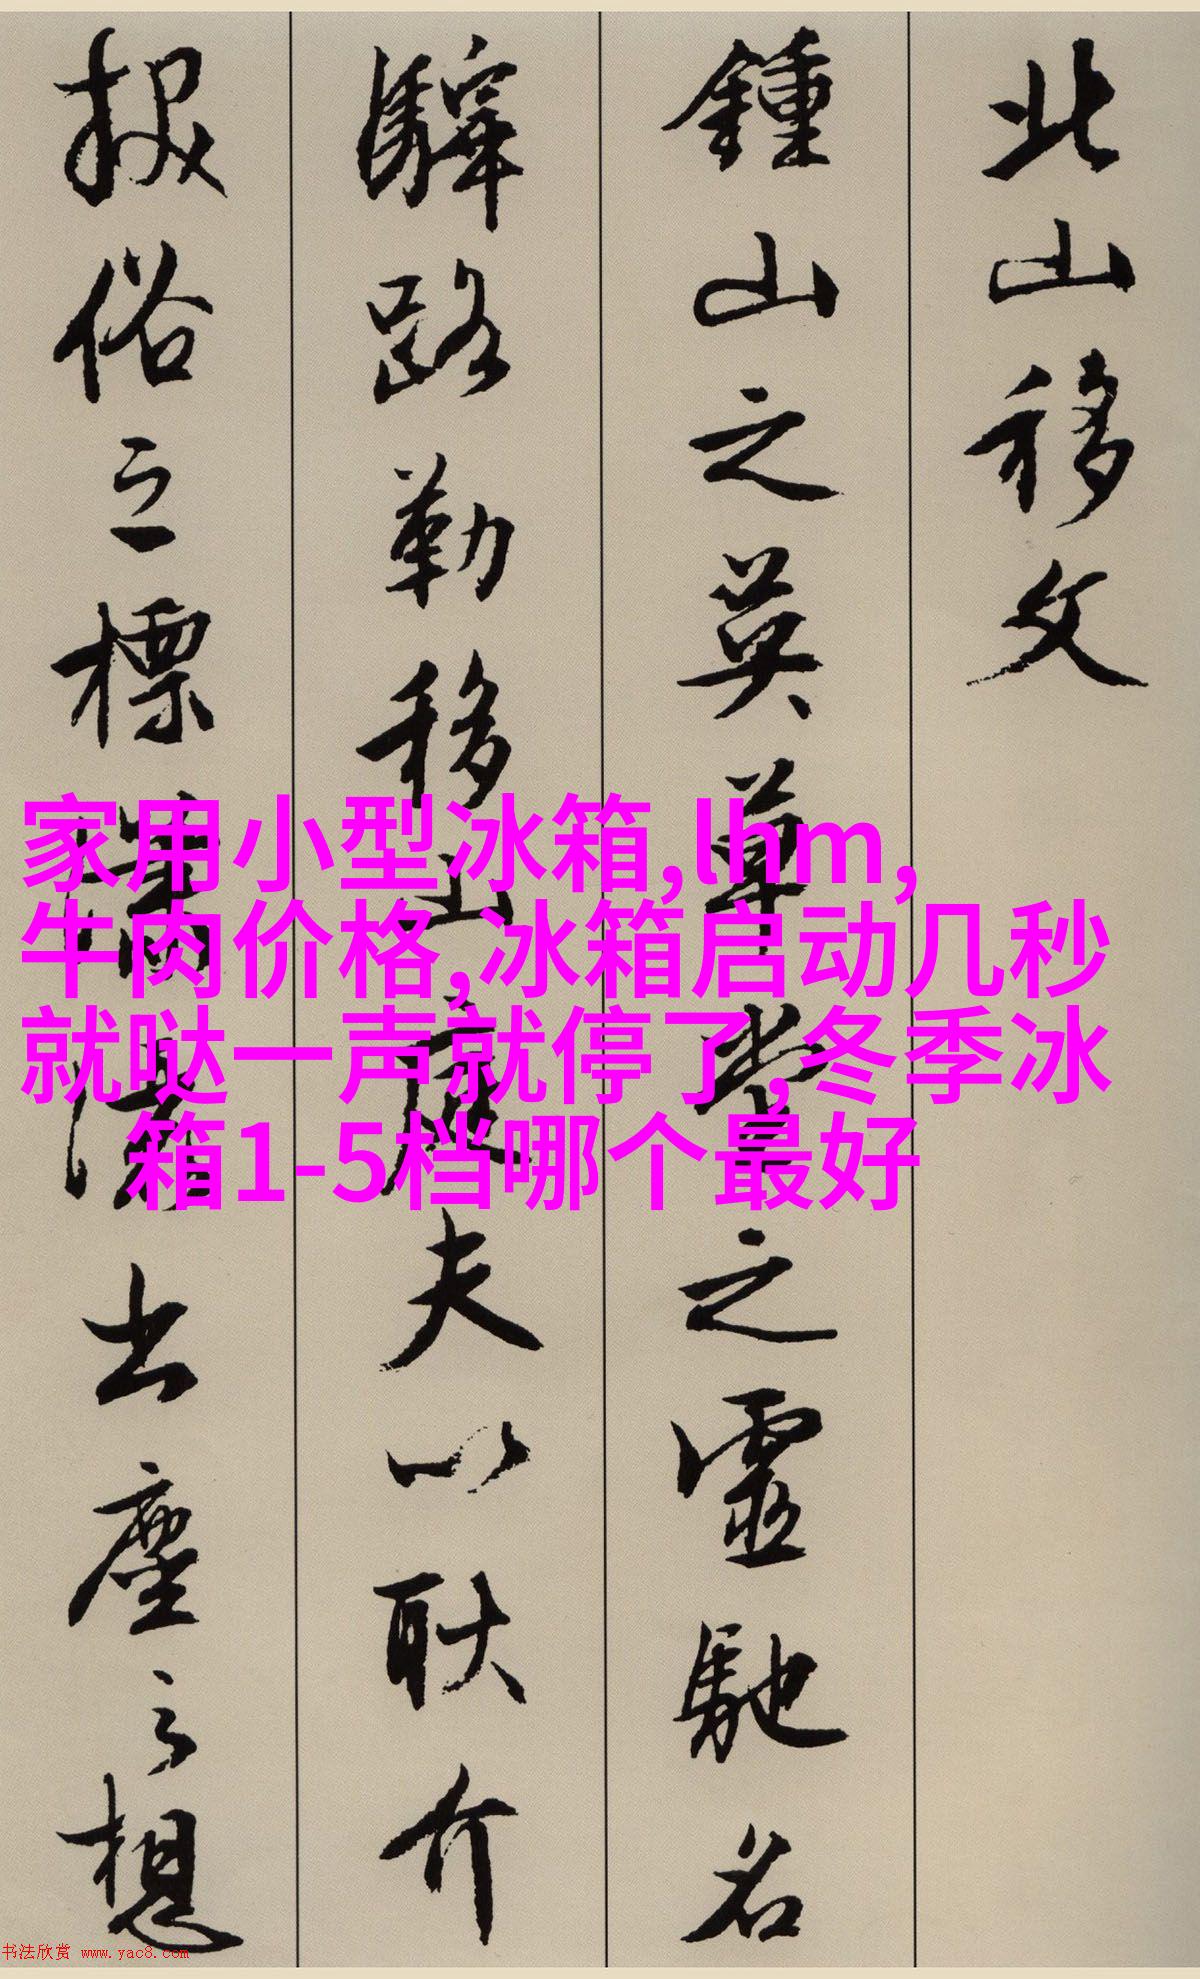 北山移文
鍾山之英草堂之靈馳名
驛路勒移山庭夫以耿介
拔俗之標瀟灑出塵之想
家用小型冰箱,lhm,
牛肉价格,冰箱启动几秒
就哒一声就停了,冬季冰
箱1-5档哪个最好
书法欣赏 www.yac8.com